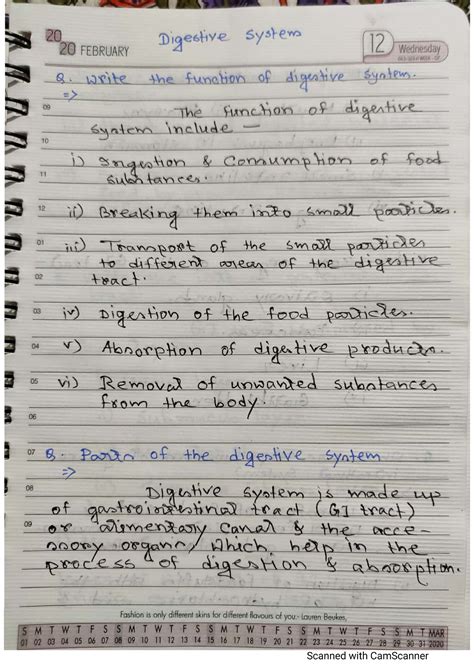 20
20 FEBRUARY
Digestive System
12
Wednesday
Q. Write the function of digestive system.
=>
09
The function of digestive
system include —
10
i) Ingestion & Consumption of food
11
substances.
12
ii) Breaking them into small particles.
01
iii) Transport of the small particles
to different areas of the digestive
02
tract.
03
iv) Digestion of the food particles.
04
v) Absorption of digestive products.
05
vi) Removal of unwanted substances
from the body.
06
07
Q. Parts of the digestive system
=>
08
Digestive system is made up
of gastrointestinal tract (GI tract)
09
or alimentary canal & the acce-
ssory organs, which, help in the
process of digestion & absorption.
Fashion is only different skins for different flavours of you.- Lauren Beukes,
S M T W T F S S M T W T F S S M T W T F S S M T W T F S S M T MAR
01 02 03 04 05 06 07 08 09 10 11 12 13 14 15 16 17 18 19 20 21 22 23 24 25 26 27 28 29 30 31 2020
Scanned with CamScanner